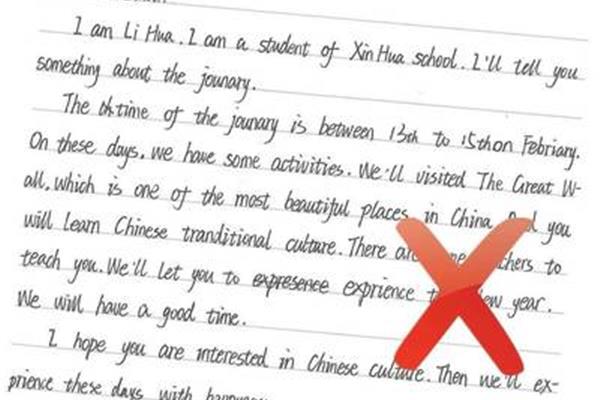 I am Li Hua. I am a student of XinHua school. I'll tell you
something about the jounary.
The time of the jounary is between 13th to 15th on Febriary.
On these days, we have some activities. We'll visited The Great W-
all, which is one of the most beautiful places in China. you
will learn Chinese tranditional culture. There to
teach you. We'll let you to expresence exprience year.
We will have a good time.
I hope you are interested in Chinese culture. Then we'll ex-
prience these days with